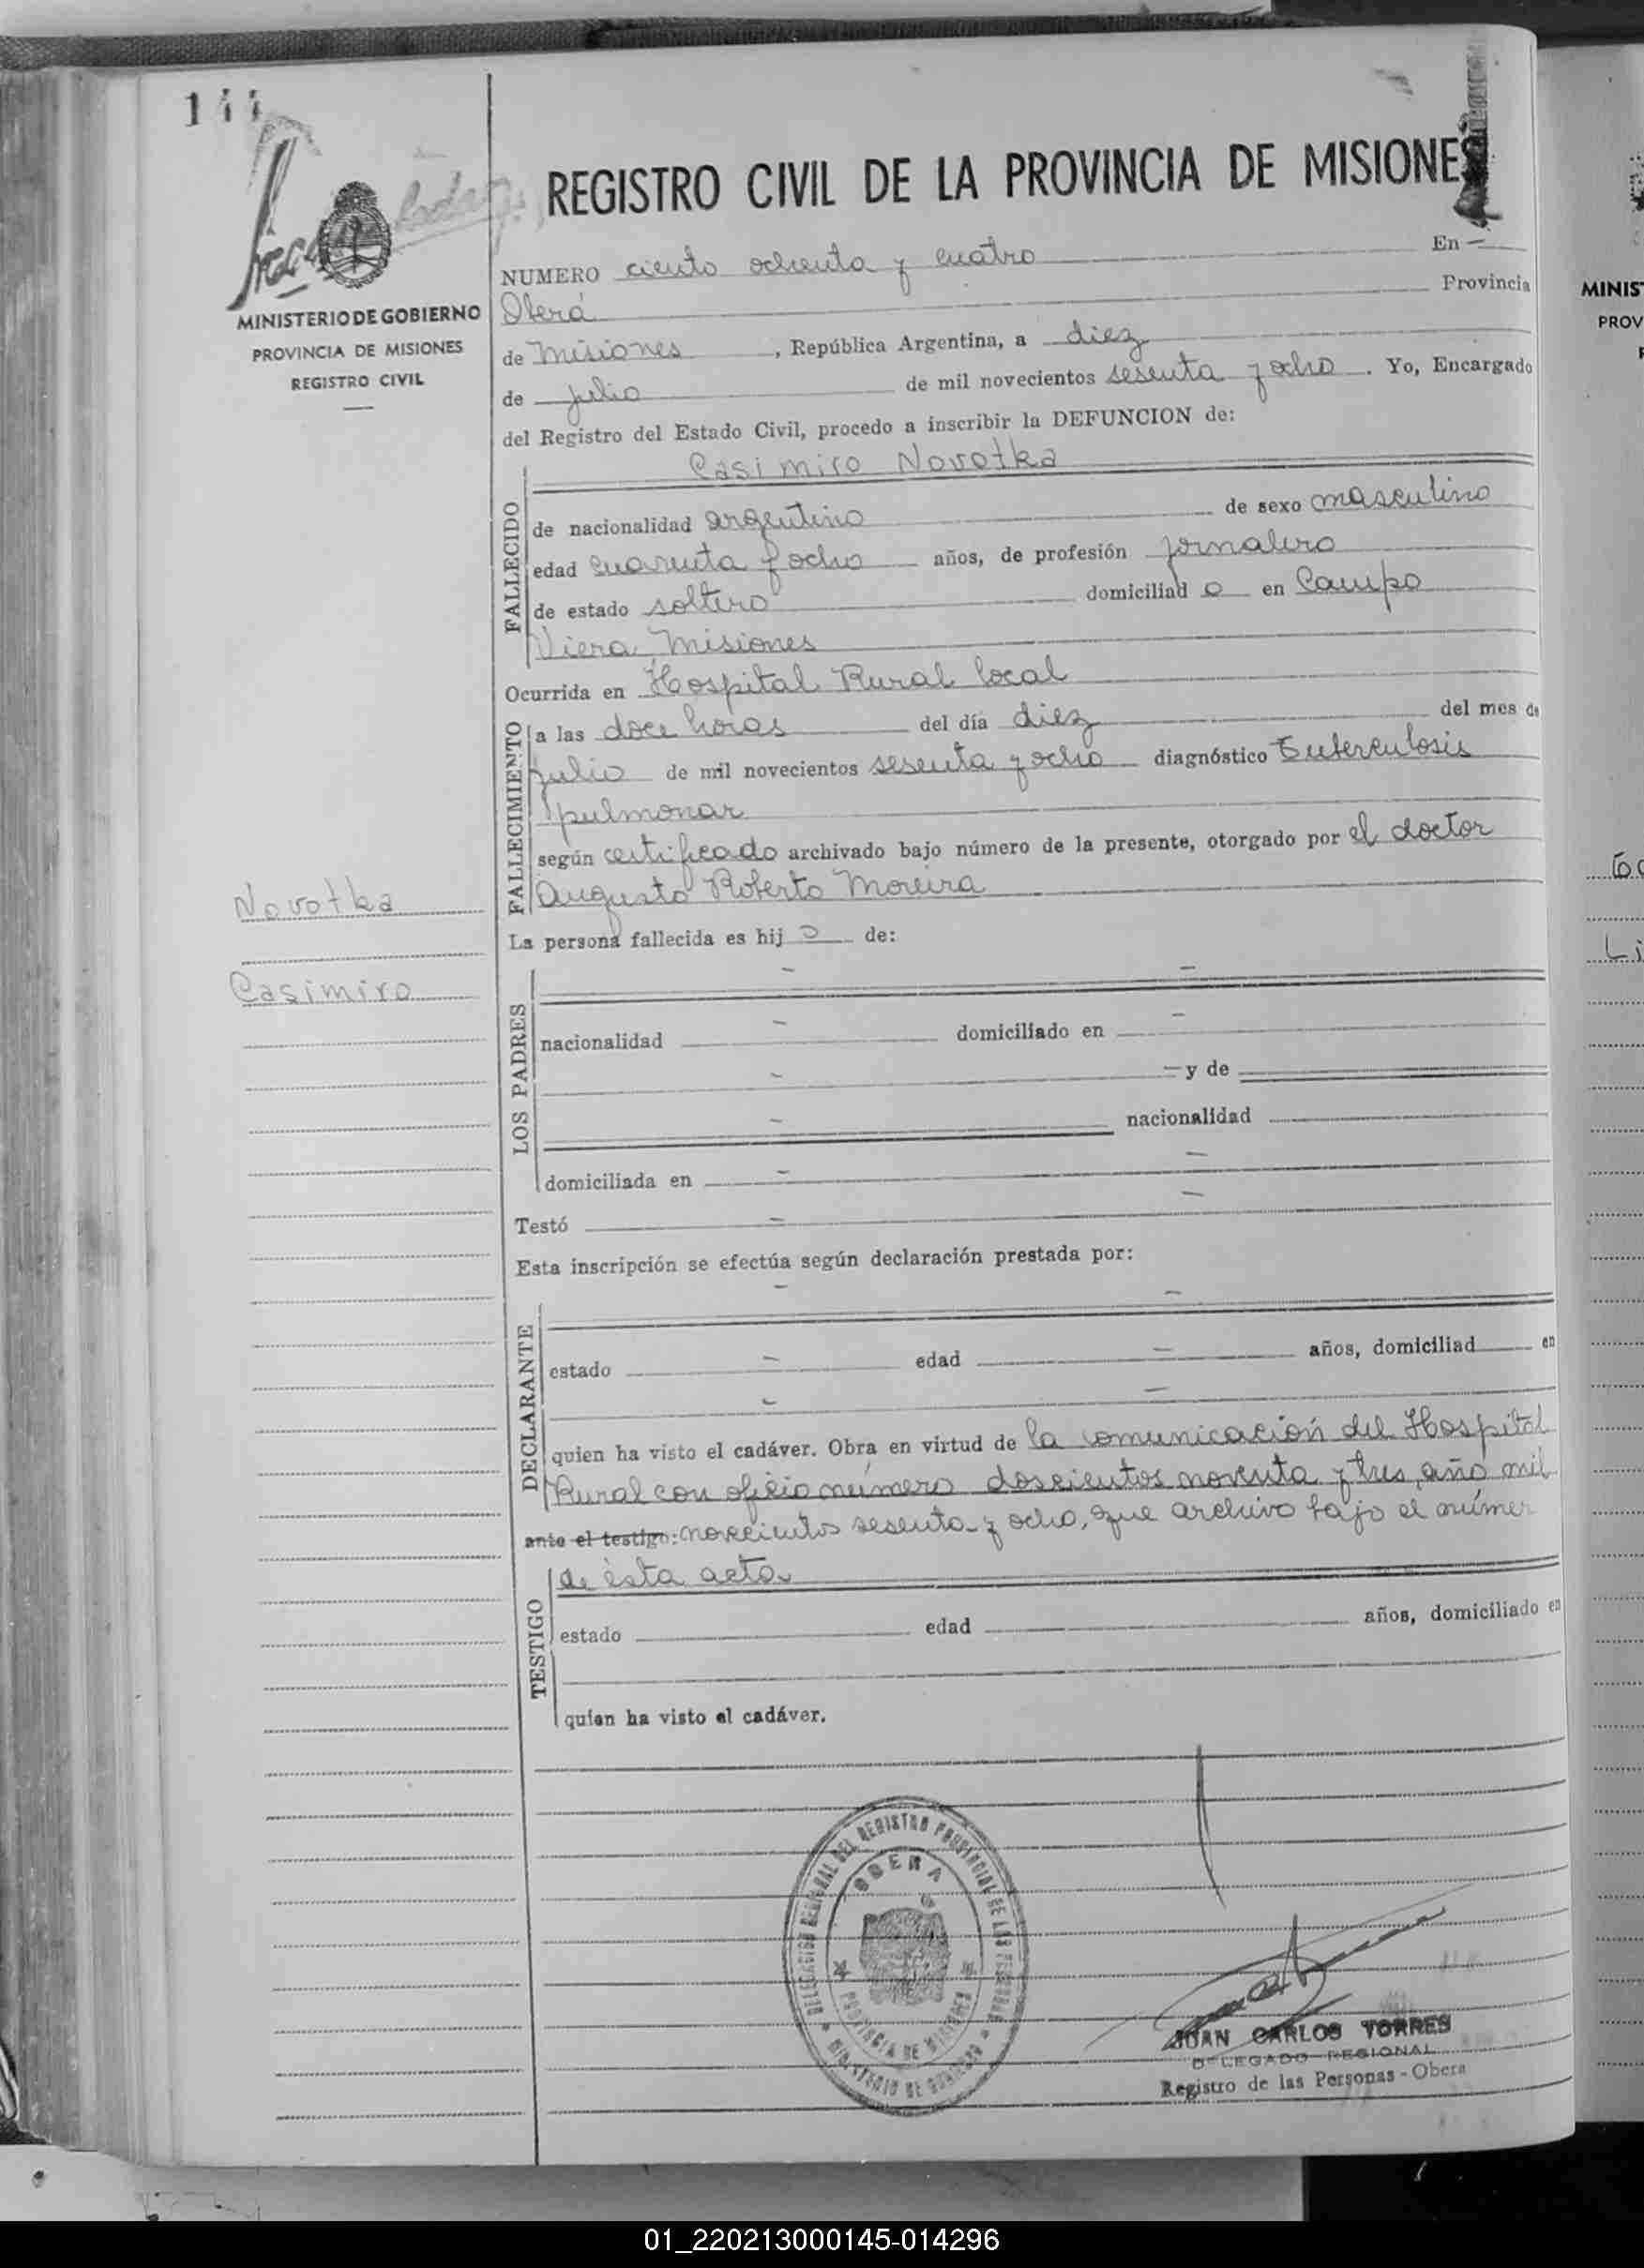 REGISTRO CIVIL DE LA PROVINCIA DE MISIONES
MINISTERIO DE GOBIERNO
PROVINCIA DE MISIONES
REGISTRO CIVIL
NUMERO ciento ochenta y cuatro En
Oberá Provincia
de Misiones, República Argentina, a diez
de julio de mil novecientos sesenta y ocho. Yo, Encargado
del Registro del Estado Civil, procedo a inscribir la DEFUNCION de:
Casimiro Novotka
FALLECIDO
de nacionalidad argentino de sexo masculino
edad cuarenta y ocho años, de profesión jornalero
de estado soltero domiciliado en Campo
Viera, Misiones
Ocurrida en Hospital Rural local
FALLECIMIENTO
a las doce horas del día diez del mes de
julio de mil novecientos sesenta y ocho diagnóstico Tuberculosis
pulmonar
según certificado archivado bajo número de la presente, otorgado por el doctor
Augusto Roberto Moreira
Novotka
Casimiro
La persona fallecida es hijo de:
LOS PADRES
nacionalidad domiciliado en
y de
nacionalidad
domiciliada en
Testó
Esta inscripción se efectúa según declaración prestada por:
DECLARANTE
estado edad años, domiciliad en
quien ha visto el cadáver. Obra en virtud de la comunicación del Hospital
Rural con oficio número doscientos noventa y tres, año mil
ante el testigo: novecientos sesenta y ocho, que archivo bajo el númer
de ésta acta
TESTIGO
estado edad años, domiciliado en
quien ha visto el cadáver.
DELEGACION REGIONAL DEL REGISTRO PROVINCIAL DE LAS PERSONAS
OBERA
PROVINCIA DE MISIONES
MINISTERIO DE GOBIERNO
JUAN CARLOS TORRES
DELEGADO REGIONAL
Registro de las Personas - Obera
MINIS
PROV
01_220213000145-014296